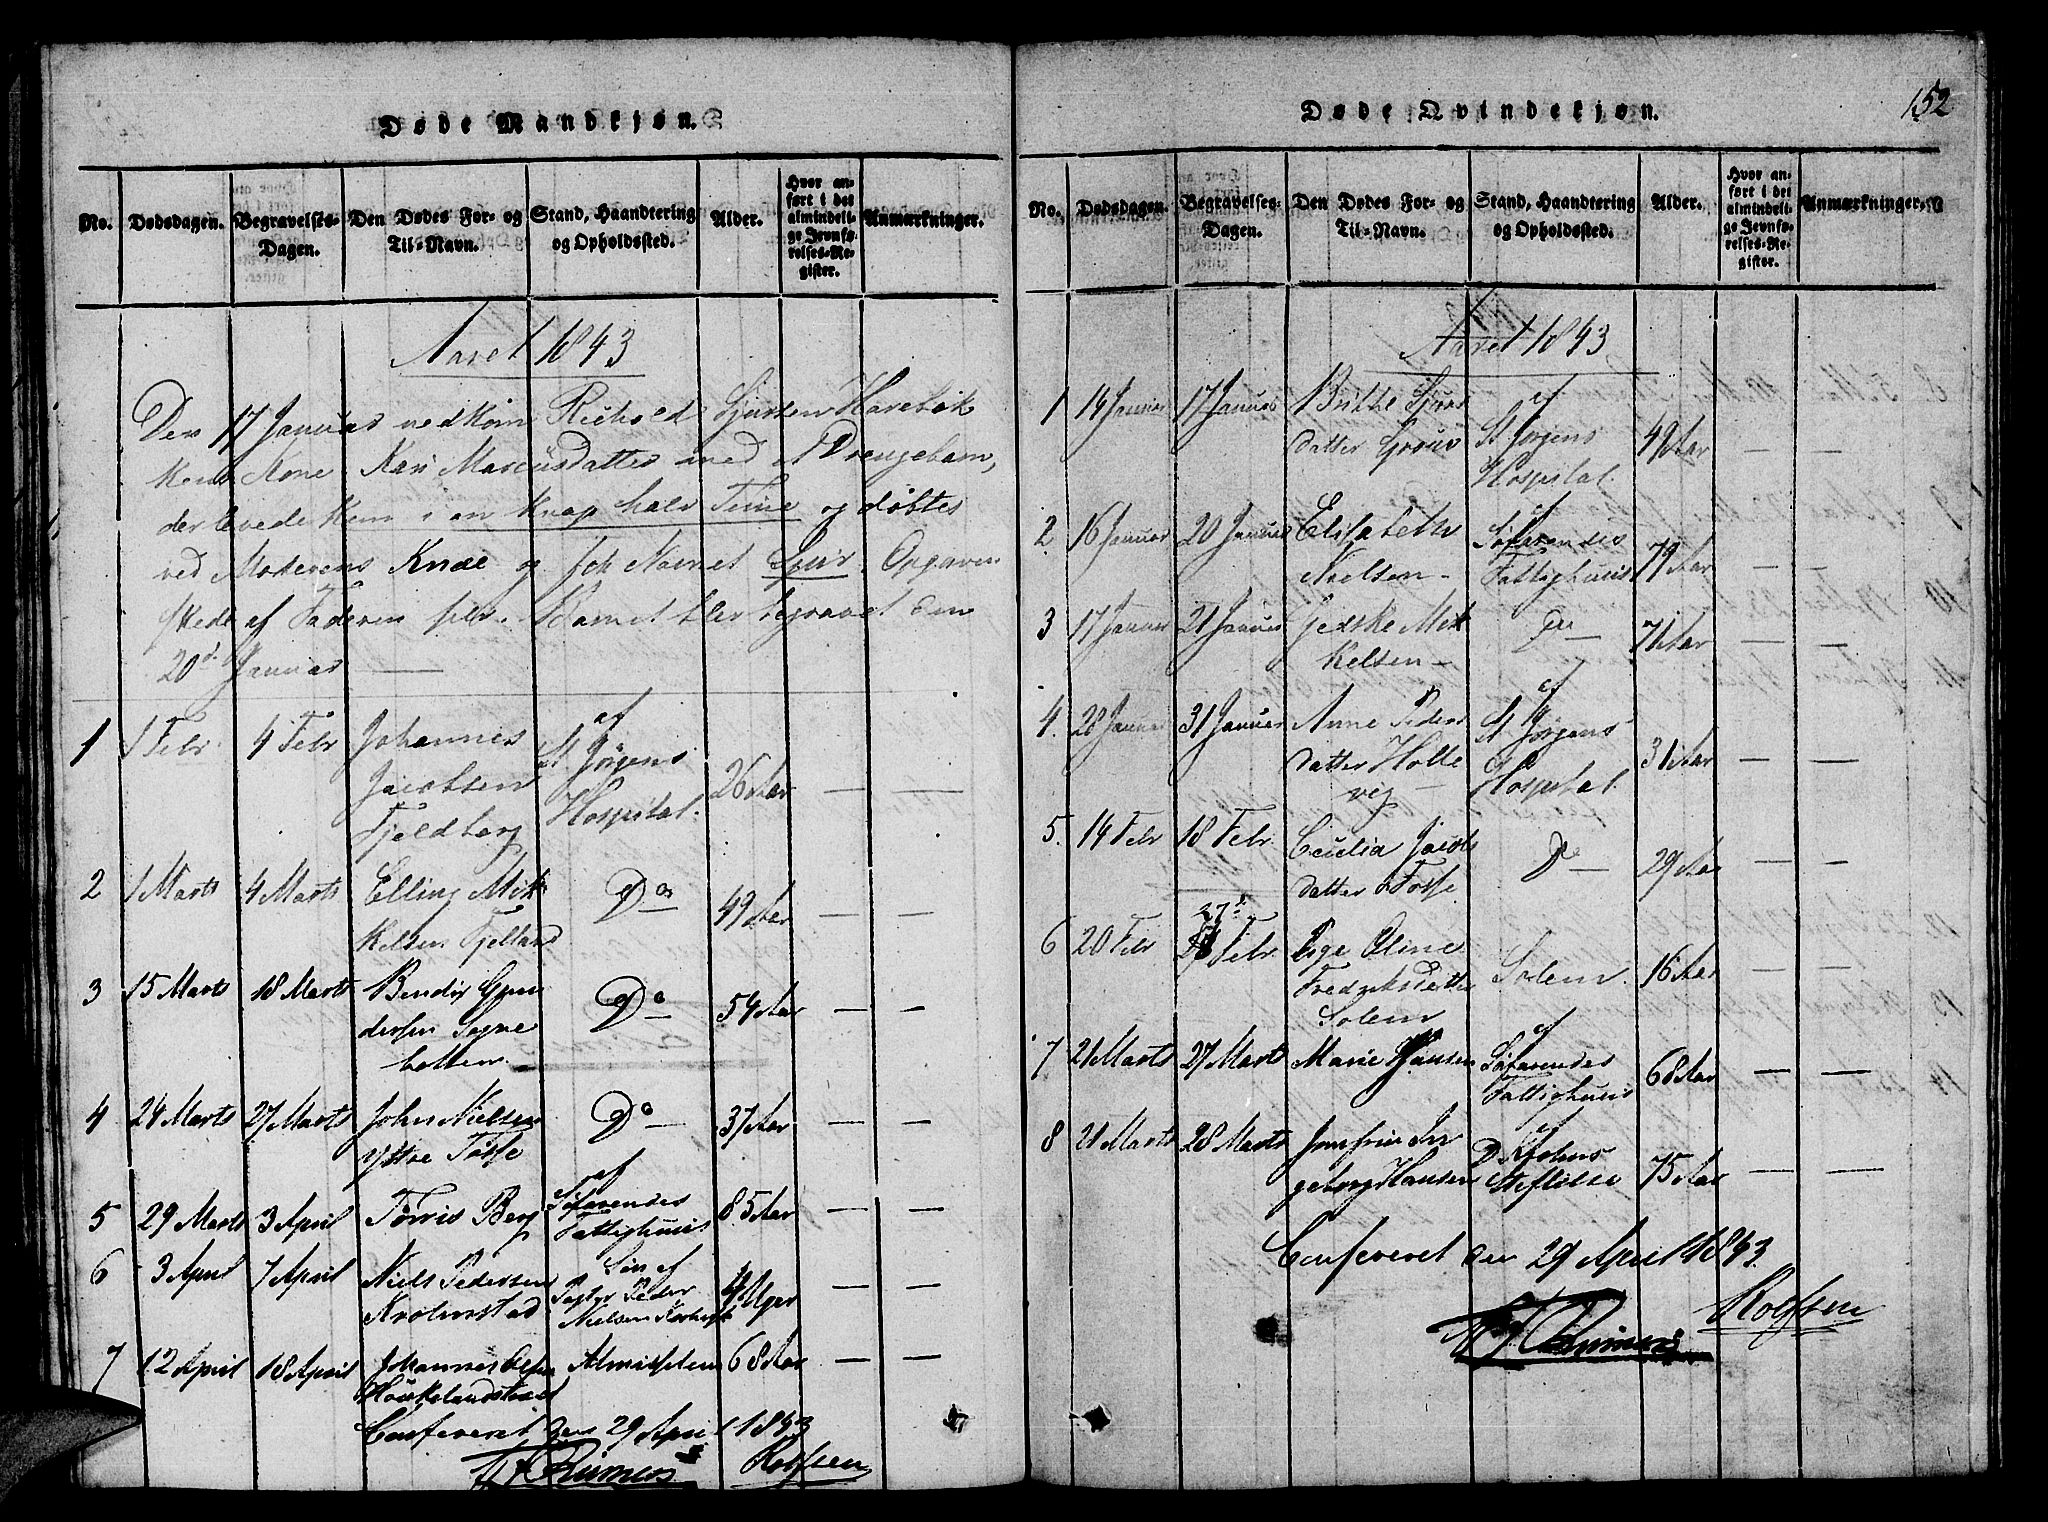 152
Døde Mandkjøn.
No.
Dødsdagen.
Begravelses-
Dagen.
Den Dødes For- og
Til-Navn.
Stand, Haandtering
og Opholdssted.
Alder.
Hvor an-
ført i det
almindeli-
ge Jevnfø-
relses-Re-
gister.
Anmærkninger.
Aaret 1843
Den 17 Januar nedkom
Kone Kari Marcusdatter med et Drengebarn,
der levede kun i en knap halv Time og døbtes
ved Moderens Knæ og fik Navnet Sjur. Opgaven
skede af Faderen selv. Barnet blev begravet den
20d Januar —
1 1 Febr 4 Febr Johannes Jacobsen Fjeldberg af St Jørgens Hospital. 26 Aar — —
2 1 Marts 4 Marts Elling Mikkelsen Fjelland Do — 49 Aar — —
3 15 Marts 18 Marts Bendix Do — 54 Aar — —
4 24 Marts 27 Marts John Nielsen Yttre Tosse Do — 37 Aar — —
5 29 Marts 3 April Torris Berg af Søfarendes Fattighuus 85 Aar — —
6 3 April 7 April Niels Pedersen Søn af Peder Nielsen 4 Uger — —
7 12 April 18 April Johannes 68 Aar — —
Confereret den 29 April 1843
Rolfsen
Døde Qvindekjøn.
No.
Dødsdagen.
Begravelses-
Dagen.
Den Dødes For- og
Til-Navn.
Stand, Haandtering
og Opholdssted.
Alder.
Hvor an-
ført i det
almindeli-
ge Jevnfø-
relses-Re-
gister.
Anmærkninger.
Aaret 1843
1 14 Januar 17 Januar Brithe Sjursdatter af St Jørgens Hospital. 49 Aar — —
2 16 Januar 20 Januar Elisabeth Nielsen — af Søfarendes Fattighuus 79 Aar — —
3 17 Januar 21 Januar Gjeske Mikkelsen — Do — 71 Aar — —
4. 28 Januar 31 Januar Anne Pedersdatter Hollevig — af St Jørgens Hospital. 31 Aar — —
5. 14 Febr 18 Febr. Cecilia Jacobsdatter Fosse Do — 29 Aar — —
6 20 Febr 27d Febr. Pige Oline Fredriksdatter Solem Solem. 16 Aar — —
7 21 Marts 27 Marts Marie Hansen af Søfarendes Fattighuus 68 Aar — —
8 21 Marts 28 Marts Jomfrue Ingeborg Hansen af Stiftelse 75 Aar — —
Confereret den 29 April 1843.
Rolfsen